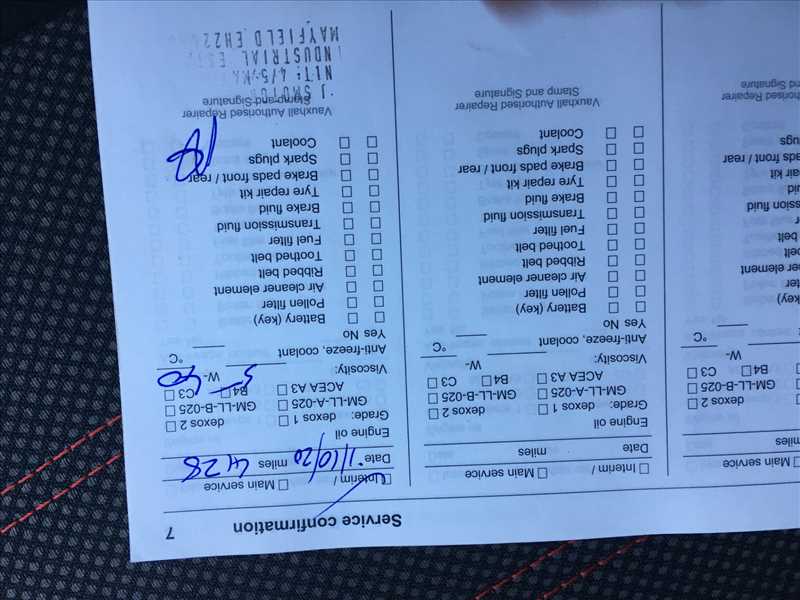 Service confirmation 7
Main service
miles
dexos 2
GM-LL-B-025
B4 C3
W-
(key)
element
belt
belt
fluid
kit
front / rear
Interim / Main service
Date miles
Engine oil
Grade: dexos 1 dexos 2
GM-LL-A-025 GM-LL-B-025
ACEA A3 B4 C3
Viscosity: W-
Anti-freeze, coolant, °C
Yes No
Battery (key)
Pollen filter
Air cleaner element
Ribbed belt
Toothed belt
Fuel filter
Transmission fluid
Brake fluid
Tyre repair kit
Brake pads front / rear
Spark plugs
Coolant
Vauxhall Authorised Repairer
Stamp and Signature
Interim / Main service
Date 1/10/20 miles 428
Engine oil
Grade: dexos 1 dexos 2
GM-LL-A-025 GM-LL-B-025
ACEA A3 B4 C3
Viscosity: 5 W- 40
Anti-freeze, coolant, °C
Yes No
Battery (key)
Pollen filter
Air cleaner element
Ribbed belt
Toothed belt
Fuel filter
Transmission fluid
Brake fluid
Tyre repair kit
Brake pads front / rear
Spark plugs
Coolant
Vauxhall Authorised Repairer
Stamp and Signature
INDUSTRIAL
MAYFIELD EH22